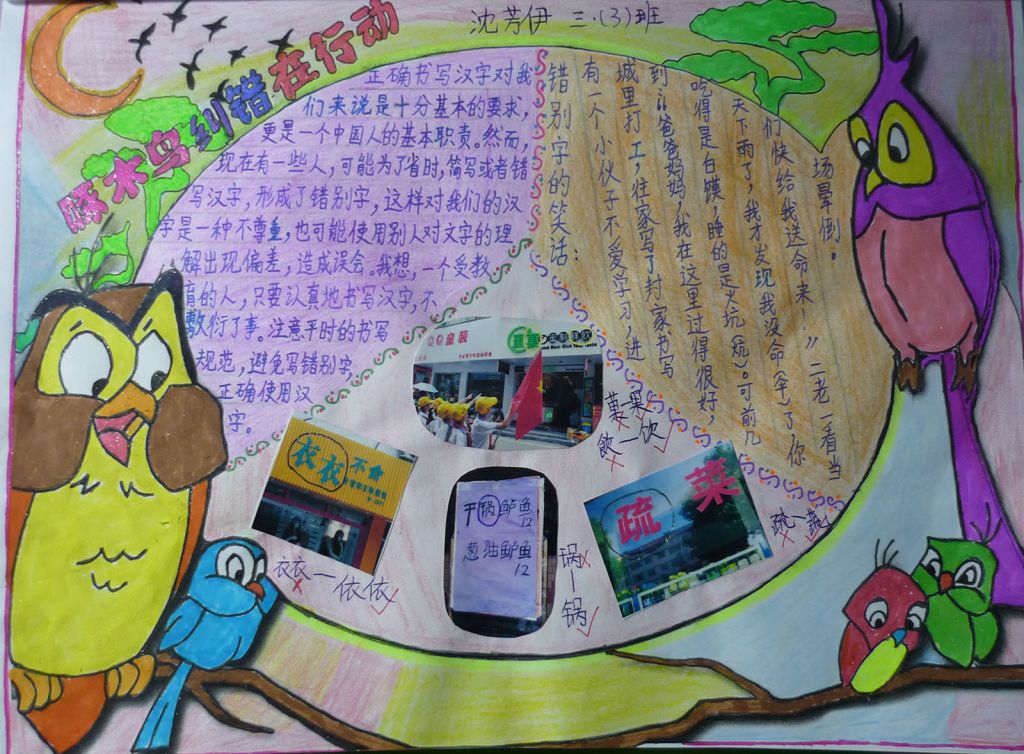 沈芳伊 三.(3)班
啄木鸟纠错在行动
正确书写汉字对我
们来说是十分基本的要求,
更是一个中国人的基本职责。然而,
现在有一些人,可能为了省时,简写或者错
写汉字,形成了错别字,这样对我们的汉
字是一种不尊重,也可能使用别人对文字的理
解出现偏差,造成误会。我想,一个受教
育的人,只要认真地书写汉字,不
敷衍了事。注意平时的书写
规范,避免写错别字,
正确使用汉
字。
错别字的笑话:
有一个小伙子不爱学习,进
城里打工,往家写了封家书写
到:“爸爸妈妈,我在这里过得很好,
吃得是白馍,睡的是火坑(炕)。可前几
天下雨了,我才发现我没命(伞)了你
们快给我送命来!”二老一看当
场晕倒。
金装
菓—果
飲—饮
衣衣不舍
衣衣—依依
干锅鲈鱼
12
葱油鲈鱼
12
锅—锅
疏菜
疏—蔬